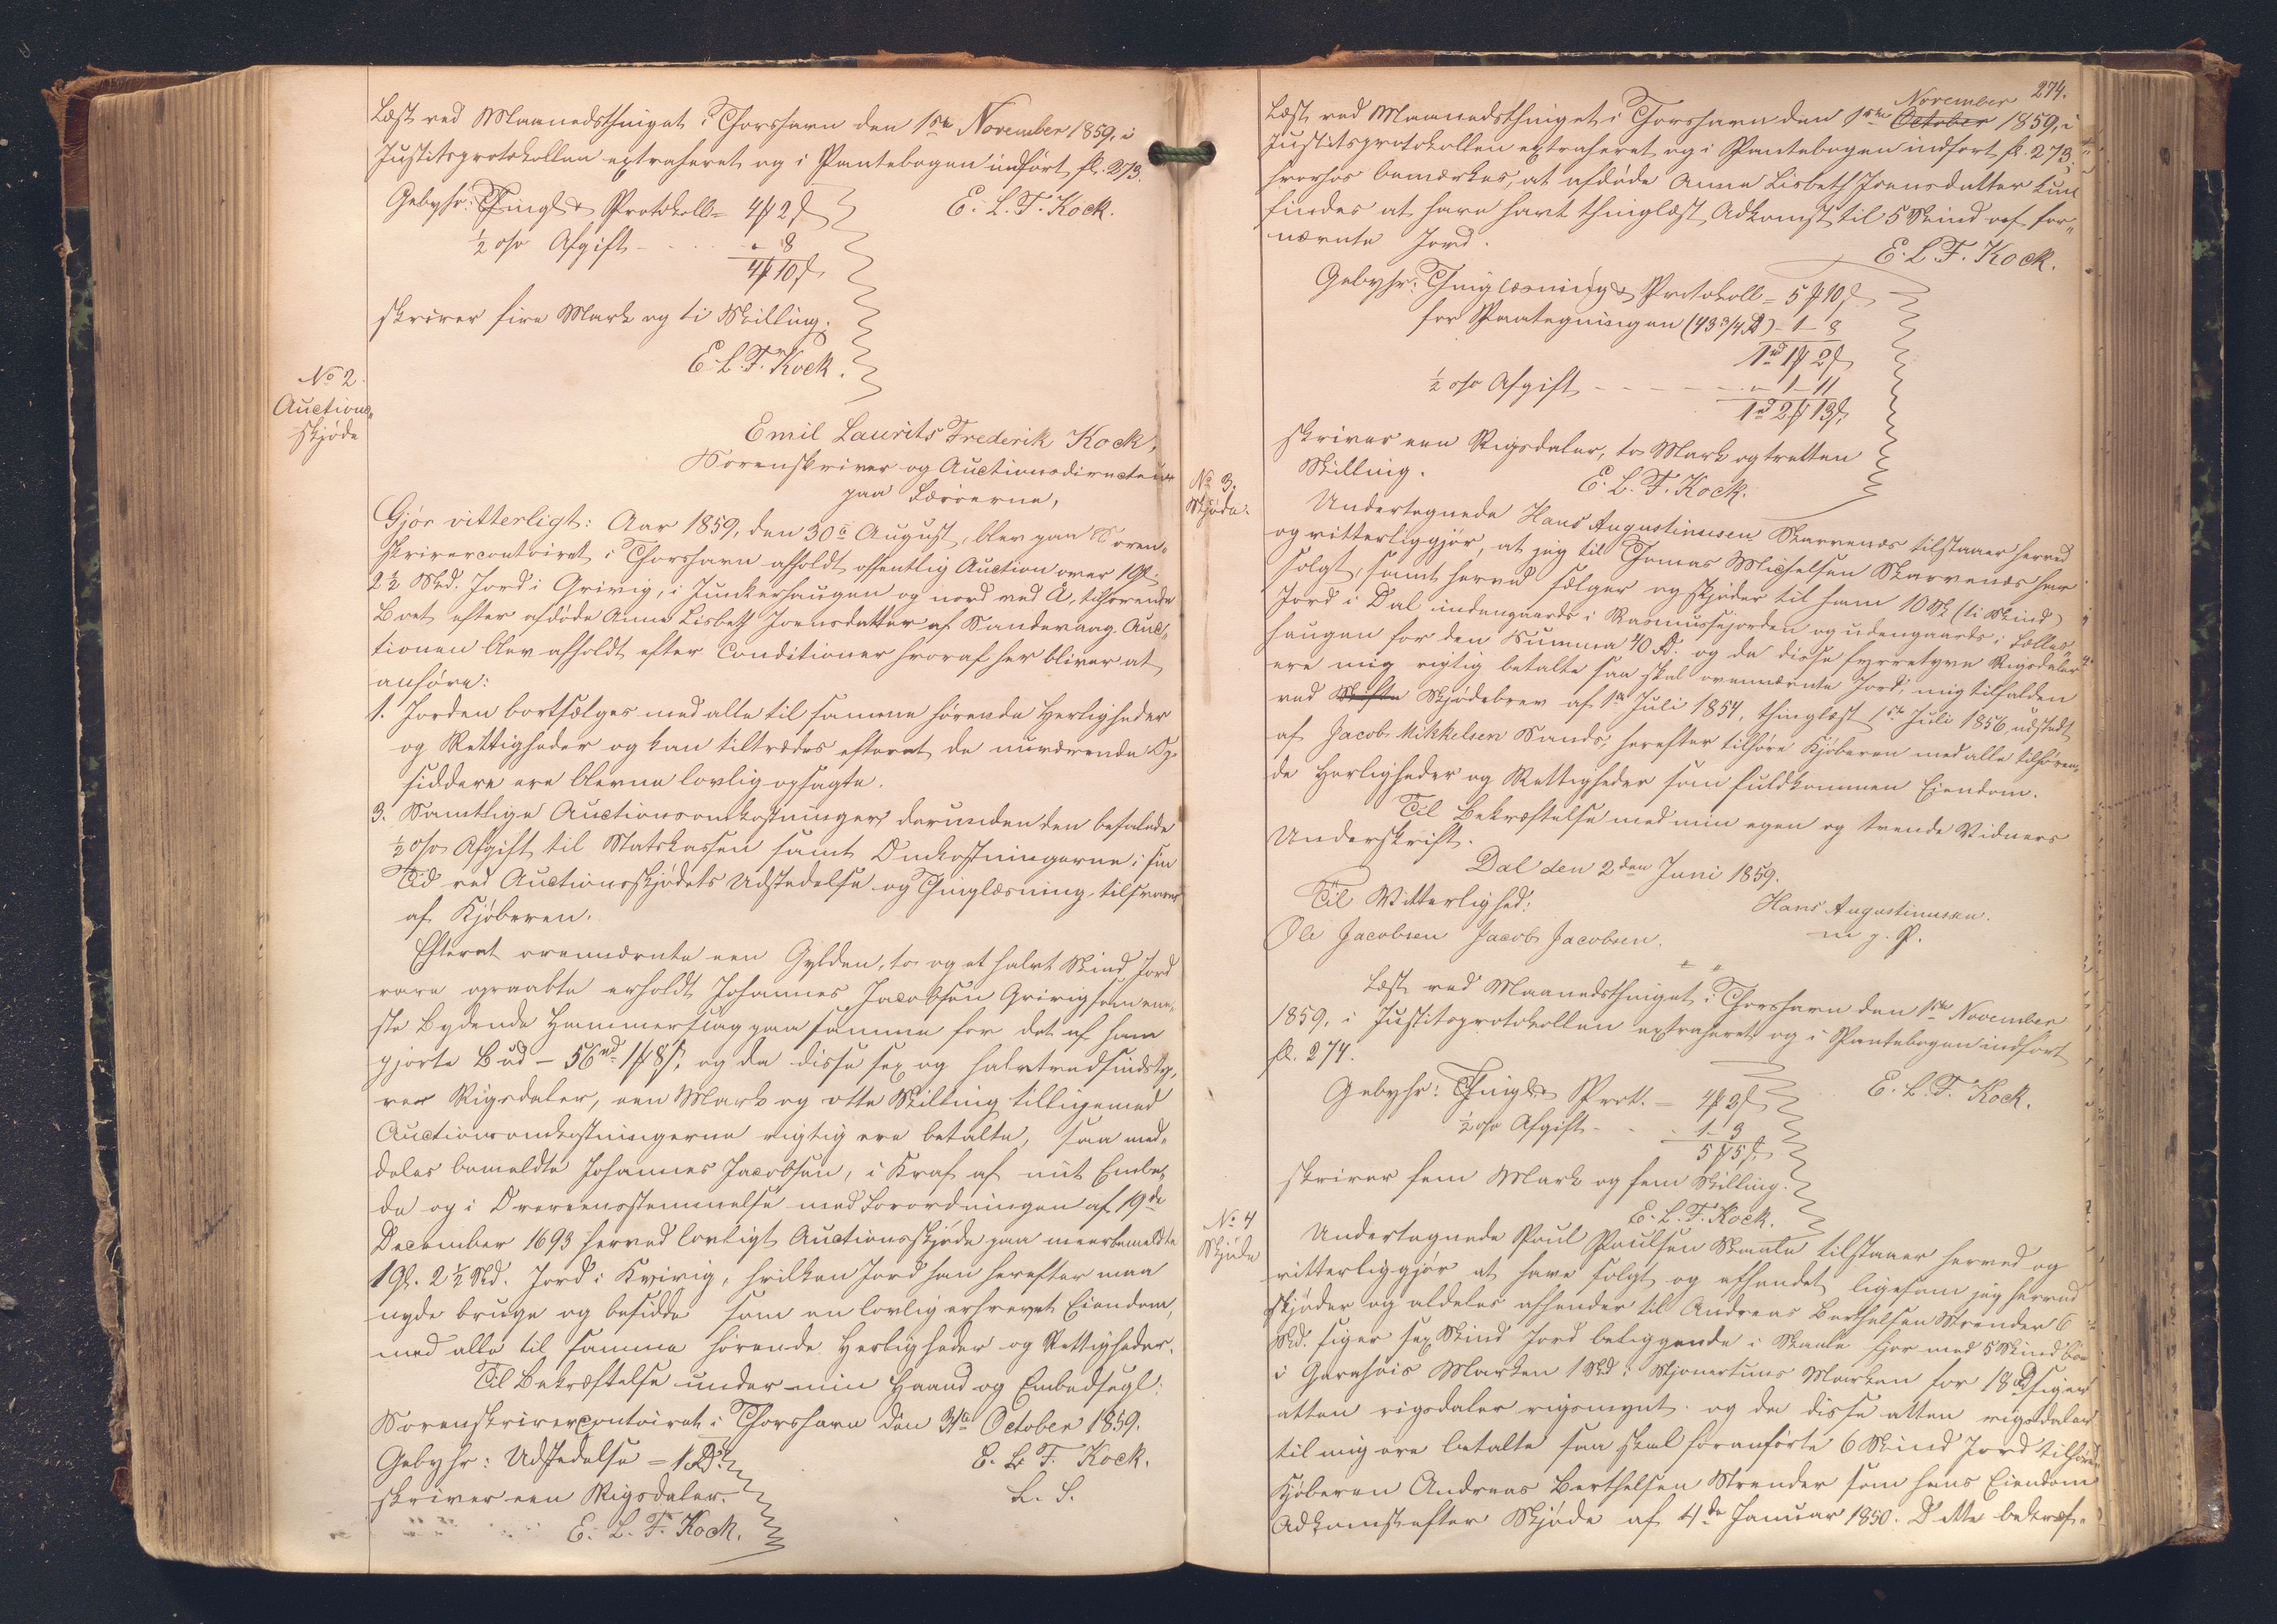 Læst ved Maanedsthinget i Thorshavn den 1ste November 1859, i
Justitsprotokollen extraheret og i Pantebogen indført fl. 273.
Gebyhr: Thingl & Protokoll = 4 ₻ 2 ß
E. L. F. Kock.
½ o/o Afgift - . . . . - 8
4 ₻ 10 ß
skriver fire Mark og ti Skilling.
E. L. F. Kock.
No 2.
Auctions„
skjøde
Emil Laurits Frederik Kock,
Sorenskriver og Auctionsdirecteur
paa Færøerne,
Gjør vitterligt: Aar 1859, den 30te August, blev paa Soren„
skrivercontoiret i Thorshavn afholdt offentlig Auction over 1 Gl.
2½ Skd. Jord i Qvivig, i Junkerhaugen og nord ved Á, tilhørende
Boet efter afdøde Anna Lisbeth Joensdatter af Sandevaag. Auc„
tionen blev afholdt efter Conditioner hvoraf her bliver at
anføre:
1. Jorden bortsælges med alle til samme hørende Herligheder
og Rettigheder og kan tiltrædes efterat de nuværende Op-
siddere ere blevne lovlig opsagte.
3. Samtlige Auctionsomkostninger, derunder den befalede
½ o/o Afgift til Statskassen samt Omkostningerne i sin
Tid ved Auctionsskjødets Udstedelse og Thinglæsning, tilsvares
af Kjøberen.
Efterat ovennævnte een Gylden, to og et halvt Skind Jord
vare opraabte erholdt Johannes Jacobsen Qvivig som ene„
ste Bydende Hammerslag paa samme for det af ham
gjorte Bud - 56 rd 1 ₻ 8 ß, og da disse sex og halvtredsindsty„
ve Rigsdaler, een Mark og otte Skilling tilligemed
Auctionsomkostningerne rigtig ere betalte, saa med„
deles bemeldte Johannes Jacobsen, i Kraf af mit Embe„
de og i Overeensstemmelse med Forordningen af 19de
December 1693 herved lovligt Auctionsskjøde paa meerbemeldte
1 Gl. 2½ Skd. Jord i Kvivig, hvilken Jord han herefter maa
nyde bruge og besidde som en lovlig erhvervet Eiendom,
med alle til samme hørende Herligheder og Rettigheder.
Til Bekræftelse under min Haand og Embedsegl:
Sorenskrivercontoiret i Thorshavn den 31te October 1859.
Gebyhr: Udstedelse = 1 Rd.
E. L. F. Kock.
skriver een Rigsdaler.
L. S.
E. L. F. Kock.
274.
November
Læst ved Maanedsthinget i Thorshavn den 1ste October 1859, i
Justitsprotokollen extraheret og i Pantebogen indført fl. 273.
hvorhos bemærkes, at afdøde Anna Lisbeth Joensdatter kun
findes at have havt thinglæst Adkomst til 5 Skind af for„
nævnte Jord.
E. L. F. Kock.
Gebyhr: Thinglæsning & Protokoll = 5 ₻ 10 ß
for Paategningen (43 3/4 ß) - 1 - 8
1 rd 1 ₻ 2 ß
½ o/o Afgift - - - - - - - 1 - 11
1 rd 2 ₻ 13 ß
skriver een Rigsdaler, to Mark og tretten
Skilling.
E. L. F. Kock.
No 3.
Skjøde.
Undertegnede Hans Augustinusen Skarvenæs tilstaaer herved
og vitterliggjør, at jeg til Thomas Michelsen Skarvenæs har
solgt, samt herved sælger og skjøder til ham 10 Sk (ti Skind)
Jord i Dal indengaards i Rasmussejorden og udengaards i
haugen for den Summa 40 Rd. og da disse fyrretyve Rigsdaler
ere mig rigtig betalte saa skal ovennævnte Jord, mig tilfalden
ved Skifte Skjødebrev af 1ste Juli 1854, thinglæst 1ste Juli 1856, udstedt
af Jacob Mikkelsen Sands, herefter tilhøre Kjøberen med alle tilhøren„
de Herligheder og Rettigheder som fuldkommen Eiendom.
Til Bekræftelse med min egen og tvende Vidners
Underskrift.
Dal den 2den Juni 1859.
Til Vitterlighed:
Hans Augustinusen.
Ole Jacobsen Jacob Jacobsen.
m. f. P.
Læst ved Maanedsthinget i Thorshavn den 1ste November
1859, i Justitsprotokollen extraheret og i Pantebogen indført
fl. 274.
Gebyhr: Thingl & Prot. = 4 ₻ 2 ß
E. L. F. Kock.
½ o/o Afgift - . . 1 - 3
5 ₻ 5 ß
skriver fem Mark og fem Skilling.
E. L. F. Kock.
No 4
Skjøde
Undertegnede Poul Poulsen Skaale tilstaaer herved og
vitterliggjør at have solgt og afhendet ligesom jeg herved
skjøder og aldeles afhender til Andreas Berthelsen Strender 6
Skd. siger sex Skind Jord beliggende i Skaale hjor med 5 Skind
i Marken 1 Skd i Marken for 18 Rd siger
atten rigsdaler rigsmynt. og da disse atten rigsdaler
til mig ere betalte saa skal foranførte 6 Skind Jord tilhøre
Kjøberen Andreas Berthelsen Strender som hans Eiendom
Adkomst efter Skjøde af 4de Januar 1850. Dette bekræf„